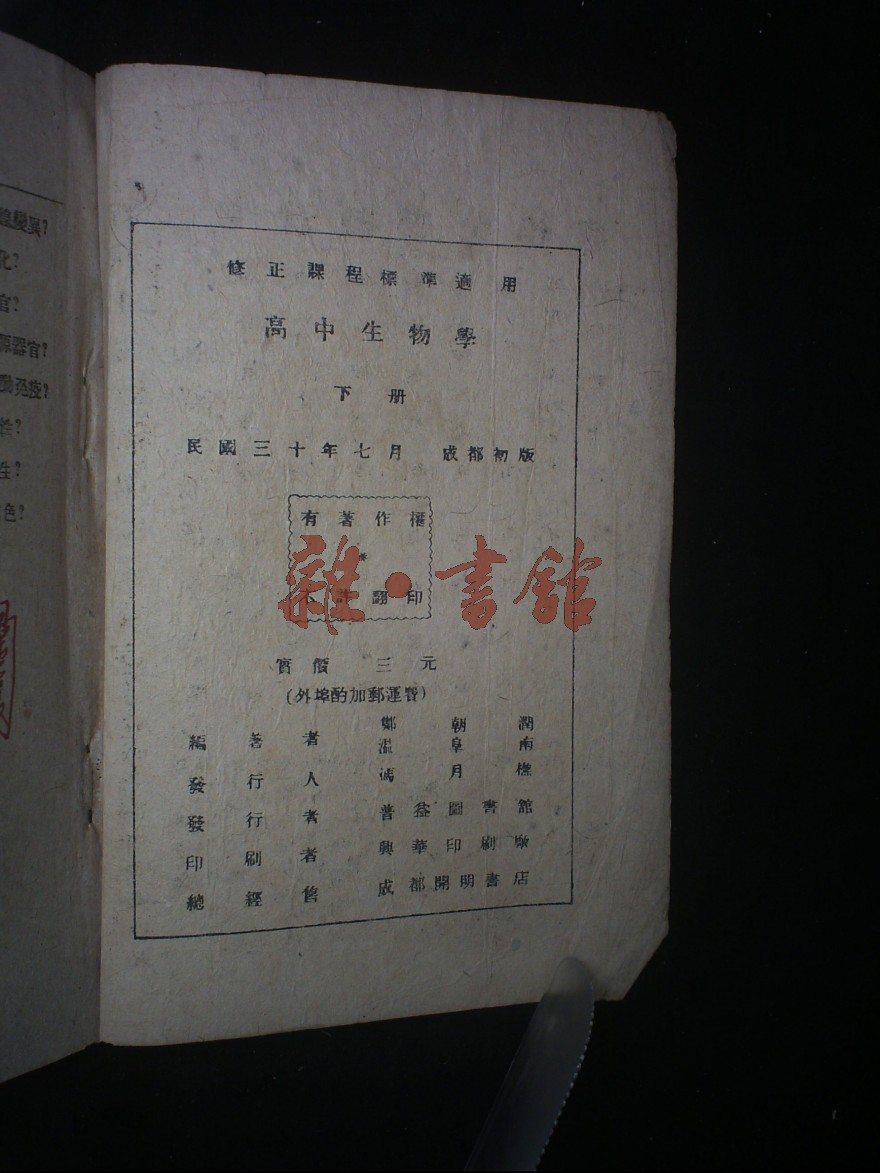 修正課程標準適用
高中生物學
下册
民國三十年七月 成都初版
有著作權
*
不許翻印
雜·書館
實價 三元
(外埠酌加郵運費)
編著者 鄭朝潤
溫阜南
發行人 馮月樵
發行者 普益圖書館
印刷者 興華印刷廠
總經售 成都開明書店
變異?
化?
官?
源器官?
免疫?
性?
色?